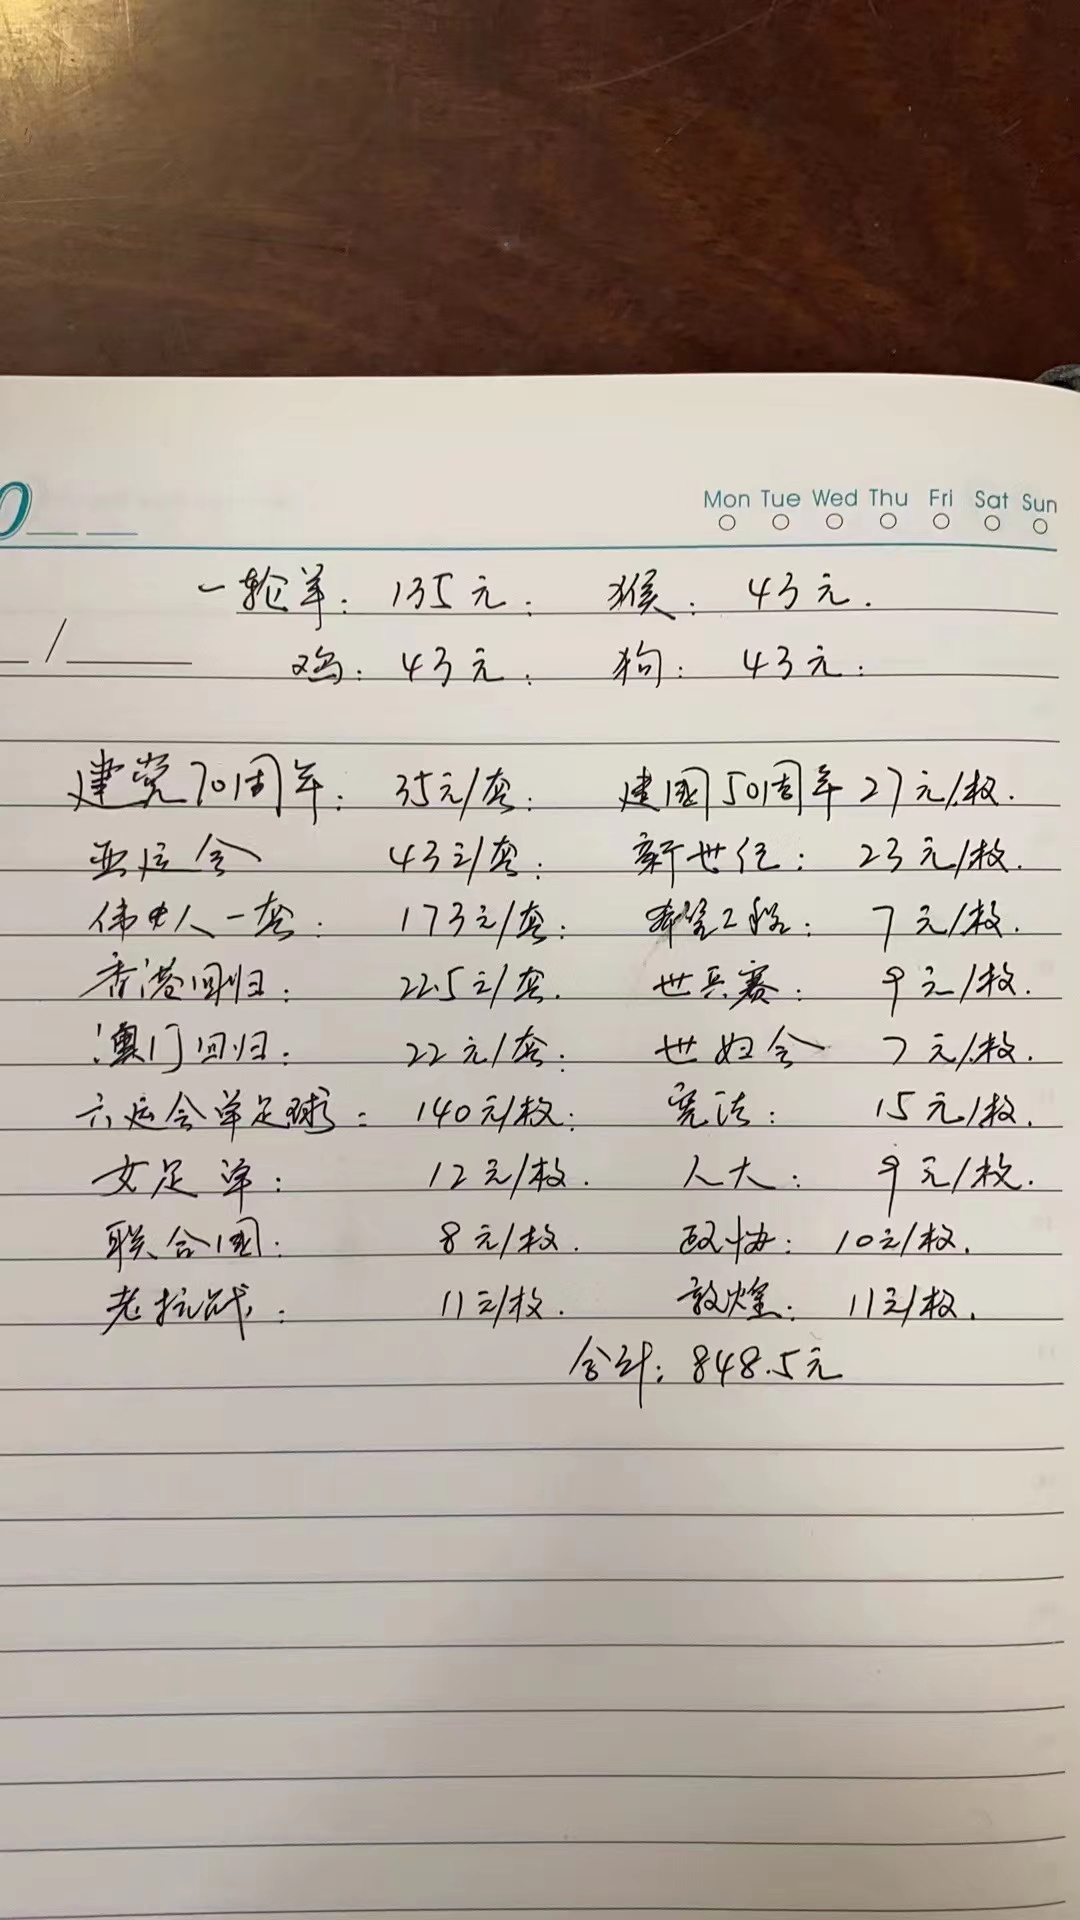 Mon Tue Wed Thu Fri Sat Sun
一轮羊: 135元; 猴: 43元.
鸡: 43元; 狗: 43元;
建党70周年: 35元/套; 建国50周年 27元/枚.
亚运会 43元/套; 新世纪: 23元/枚.
伟人一套: 173元/套; 希望工程: 7元/枚.
香港回归: 22.5元/套. 世乒赛: 9元/枚.
澳门回归: 22元/套; 世妇会 7元/枚.
六运会单足球: 140元/枚; 宪法: 15元/枚.
女足单: 12元/枚. 人大: 9元/枚.
联合国: 8元/枚. 政协: 10元/枚.
老抗战: 11元/枚. 敦煌: 11元/枚.
合计: 848.5元